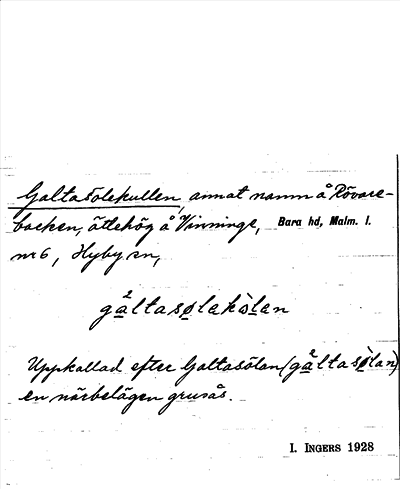 Galtasölekullen, annat namn å Rövare-
backen, ättehög å Vinninge, Bara hd, Malm. l.
nr 6, Hyby sn,
gàltasølakòlan
Uppkallad efter Galtasölan (gàltasølan)
en närbelägen grusås.
I. INGERS 1928